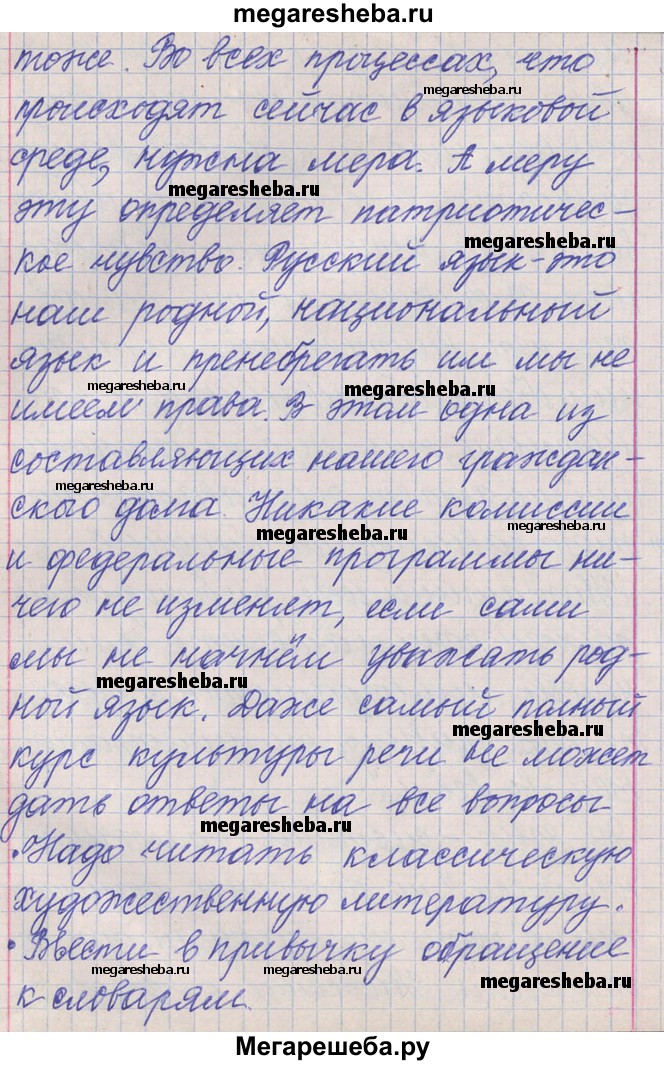 megaresheba.ru
тоже. Во всех процессах, что
megaresheba.ru
происходят сейчас в языковой
среде, нужна мера. А меру
megaresheba.ru
эту определяет патриотичес-
megaresheba.ru
кое чувство. Русский язык-это
наш родной, национальный
язык и пренебрегать им мы не
megaresheba.ru megaresheba.ru
имеем права. В этом одна из
составляющих нашего граждан-
megaresheba.ru
ского дома. Никакие комиссии
megaresheba.ru megaresheba.ru
и федеральные программы ни-
чего не изменят, если сами
мы не начнём уважать род-
megaresheba.ru
ной язык. Даже самый полный
megaresheba.ru
курс культуры речи не может
дать ответы на все вопросы
megaresheba.ru
•Надо читать классическую
художественную литературу.
• Ввести в привычку обращение
megaresheba.ru megaresheba.ru megaresheba.ru
к словарям.
Мегарешеба.ру